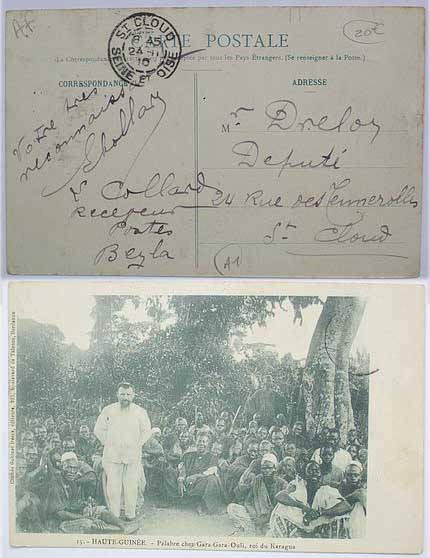 A4
20€
ST CLOUD
8 45
24-11
10
SEINE ET OISE
CARTE POSTALE
(La Correspondance
acceptée par tous les Pays Étrangers. (Se renseigner à la Poste.)
CORRESPONDANCE
ADRESSE
Votre très
reconnaiss
Collard
L Collard
Receveur
Postes
Beyla
Mr Dreloy
Député
24 Rue des Tennerolles
St Cloud
A1
15. - HAUTE-GUINÉE. - Palabre chez Gara-Gara-Ouli, roi du Karagua